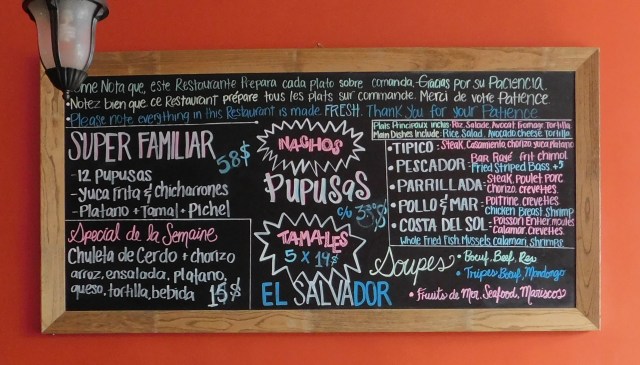 Tome Nota que, este Restaurante Prepara cada plato sobre comanda. Gracias por su Paciencia.
•Notez bien que ce Restaurant prépare tous les plats sur commande. Merci de votre Patience.
•Please note everything in this Restaurant is made FRESH. Thank You for your Patience
SUPER FAMILIAR
58$
-12 pupusas
-Yuca frita & chicharrones
-Platano + Tamal + Pichel
Special de la Semaine
Chuleta de Cerdo + chorizo
arroz, ensalada, platano,
queso, tortilla, bebida 15$
NACHOS
PUPUSAS
TAMALES
5 x 19$
EL SALVADOR
Plats Principaux inclus: Riz, Salade, Avocat, Fromage, Tortilla
Main Dishes Include: Rice, Salad, Avocado, cheese, Tortilla.
•TIPICO - Steak, Casamiento, chorizo, yuca, platano
•PESCADOR - Bar Rayé frit chimol
Fried Striped Bass
•PARRILLADA - Steak, Poulet, Porc
Chorizo, crevettes.
•POLLO & MAR - Poitrine, crevettes
Chicken Breast Shrimp
•COSTA DEL SOL - Poisson Entier, moules
Calamar, Crevettes.
Whole Fried Fish, Mussels, calamari, shrimps
Soupes • Boeuf, Beef, Res
• Tripes Boeuf, Mondongo
• Fruits de Mer, Seafood, Mariscos